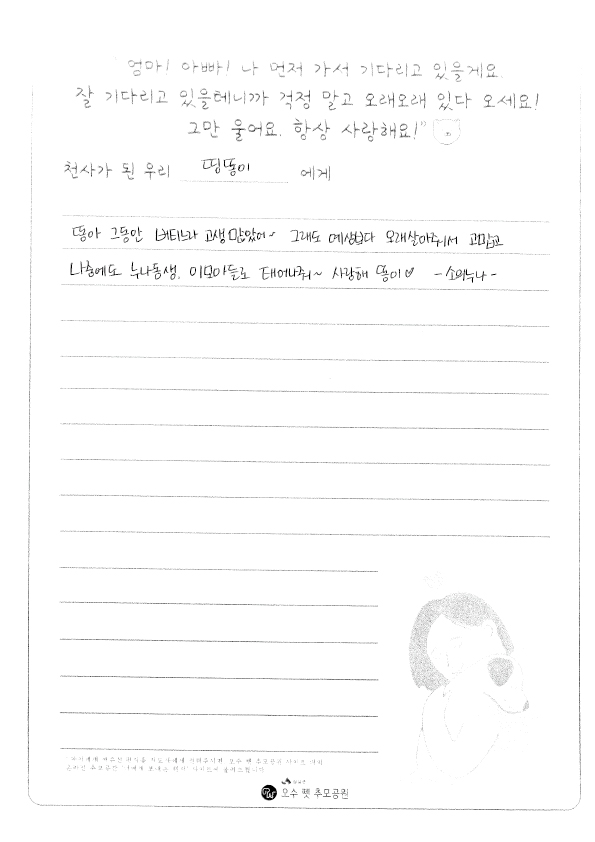 엄마! 아빠! 나 먼저 가서 기다리고 있을게요.
잘 기다리고 있을테니까 걱정 말고 오래오래 있다 오세요!
그만 울어요. 항상 사랑해요!
천사가 된 우리 띵똥이 에게
똥아 그동안 버티느라 고생많았어~ 그래도 예상보다 오래살아줘서 고맙고
나중에도 누나동생, 이모아들로 태어나줘~ 사랑해 똥이♡ -소희누나-
오수 펫 추모공원